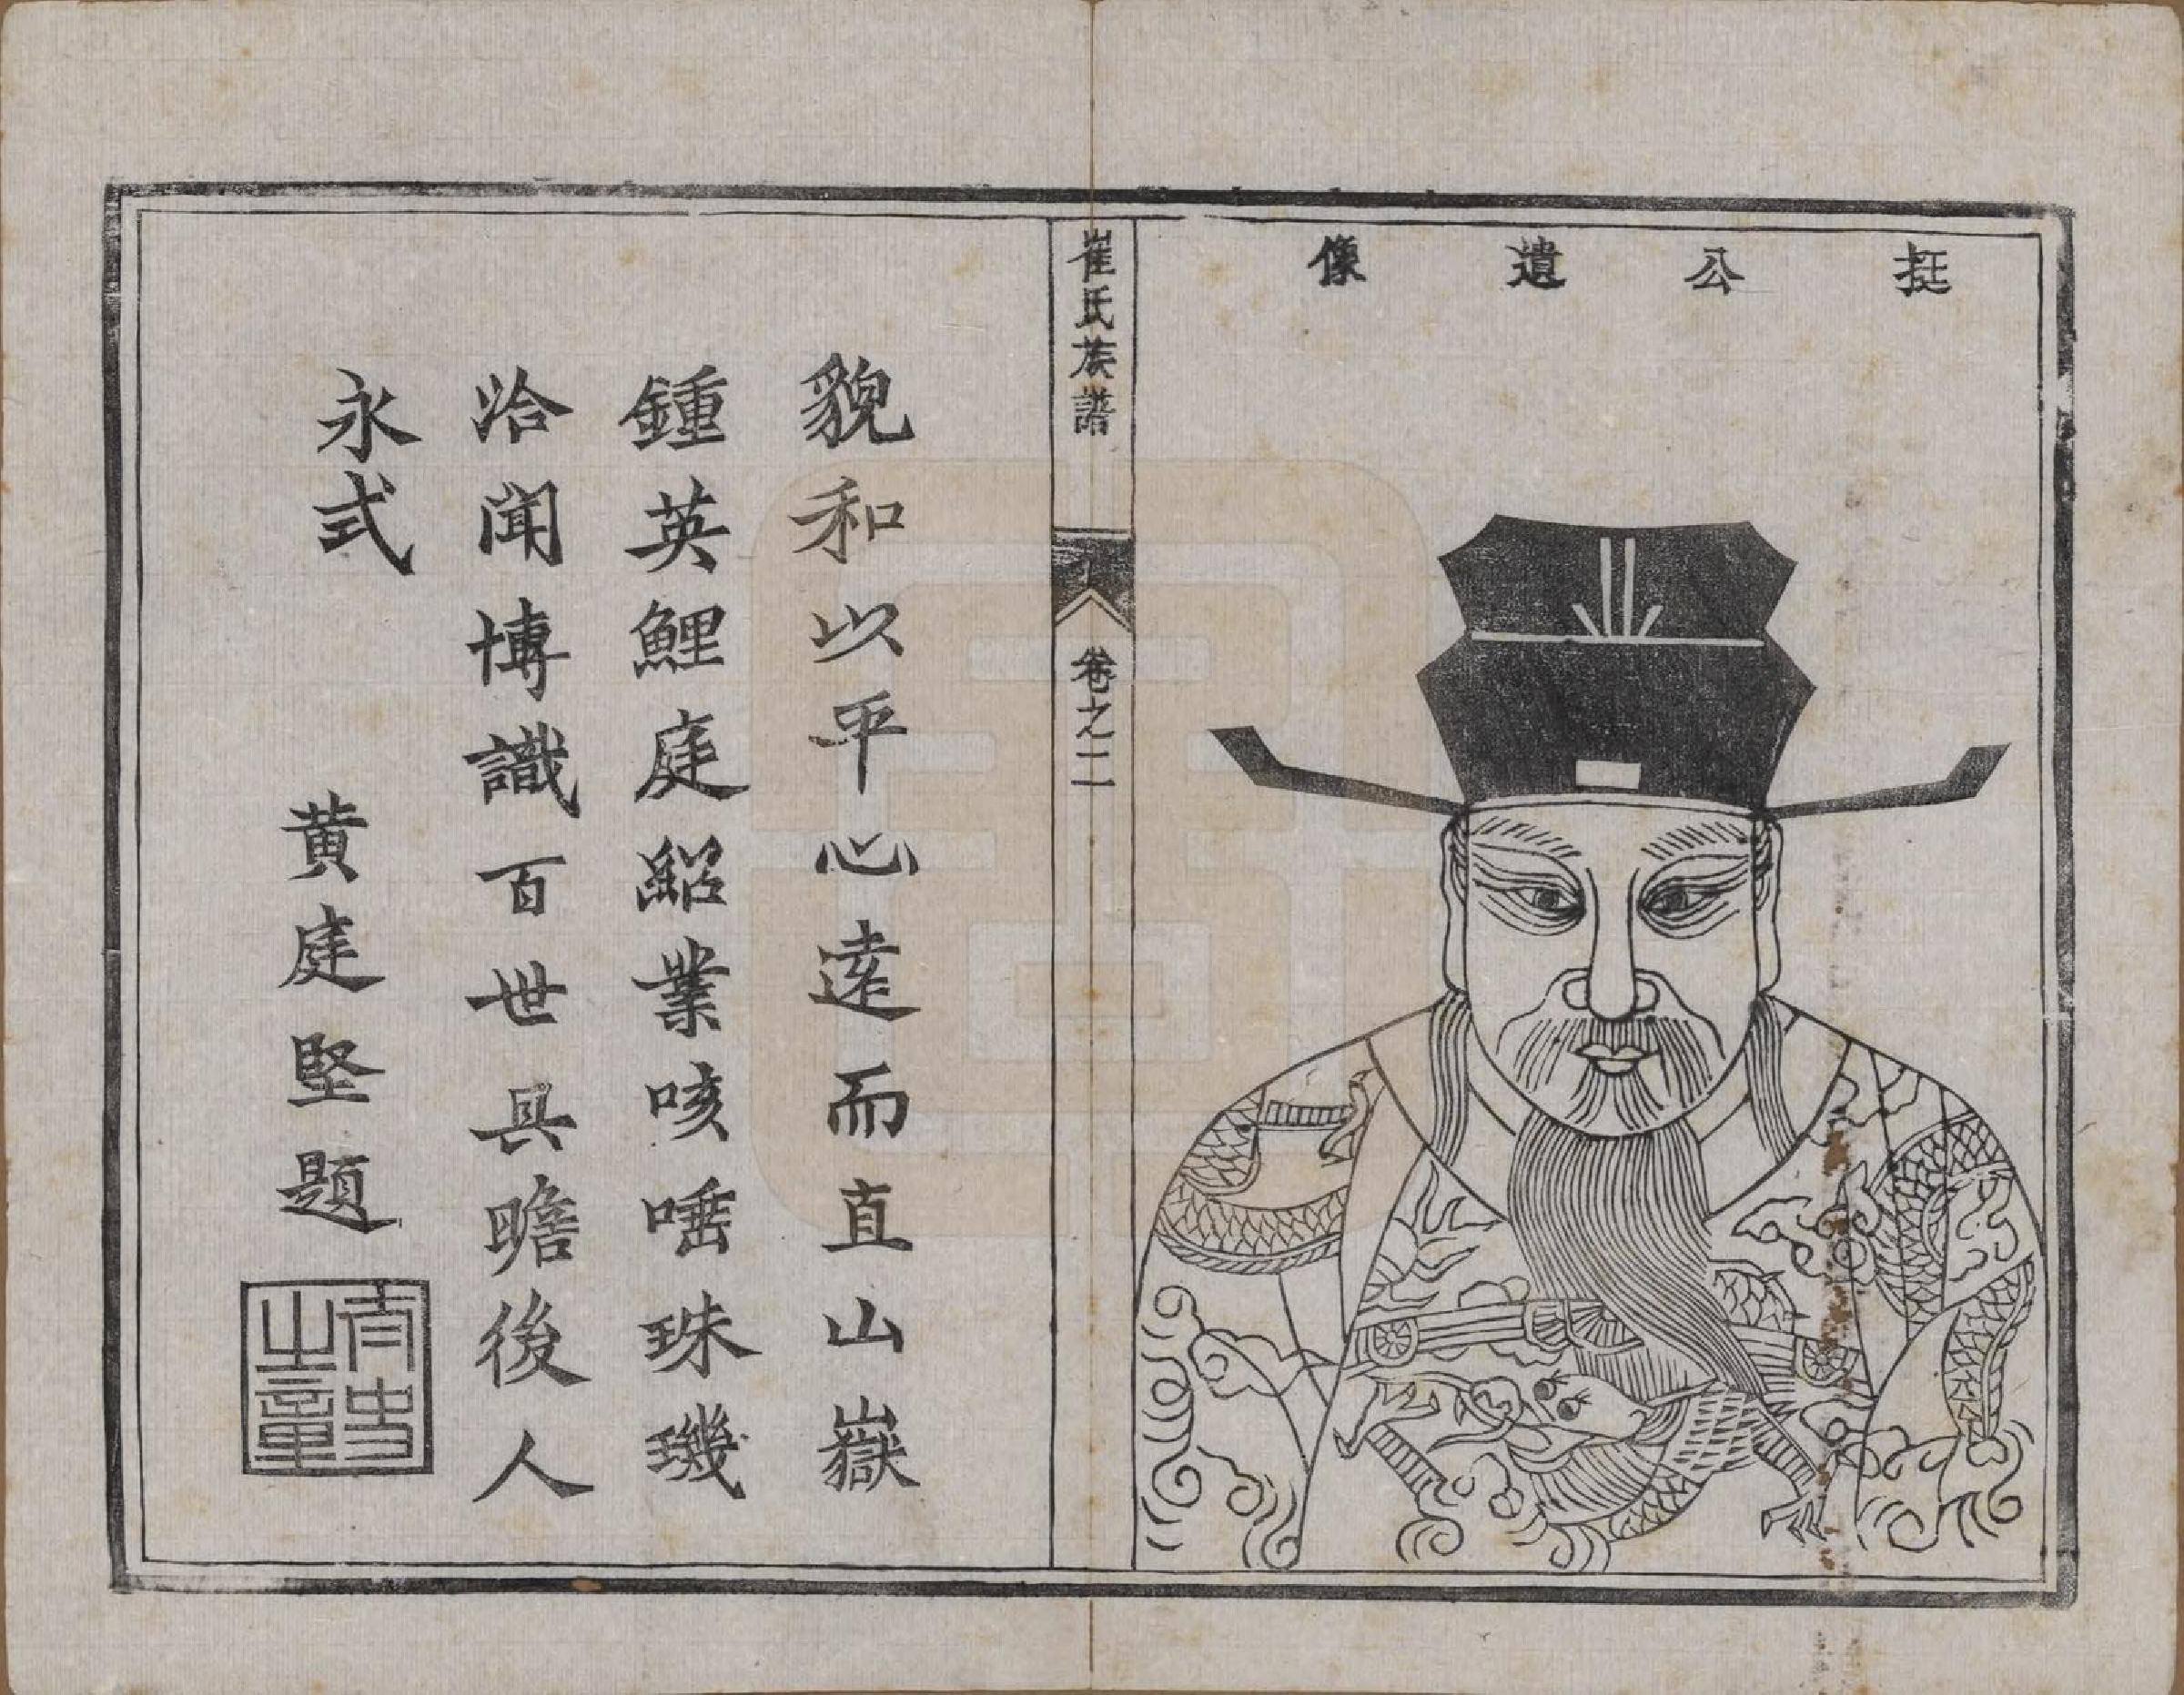 挺公遺像
崔氏族譜 卷之二
貌和以平心遠而直山嶽
鍾英鯉庭紹業咳唾珠璣
洽聞博識百世具瞻後人
永式
黃庭堅題